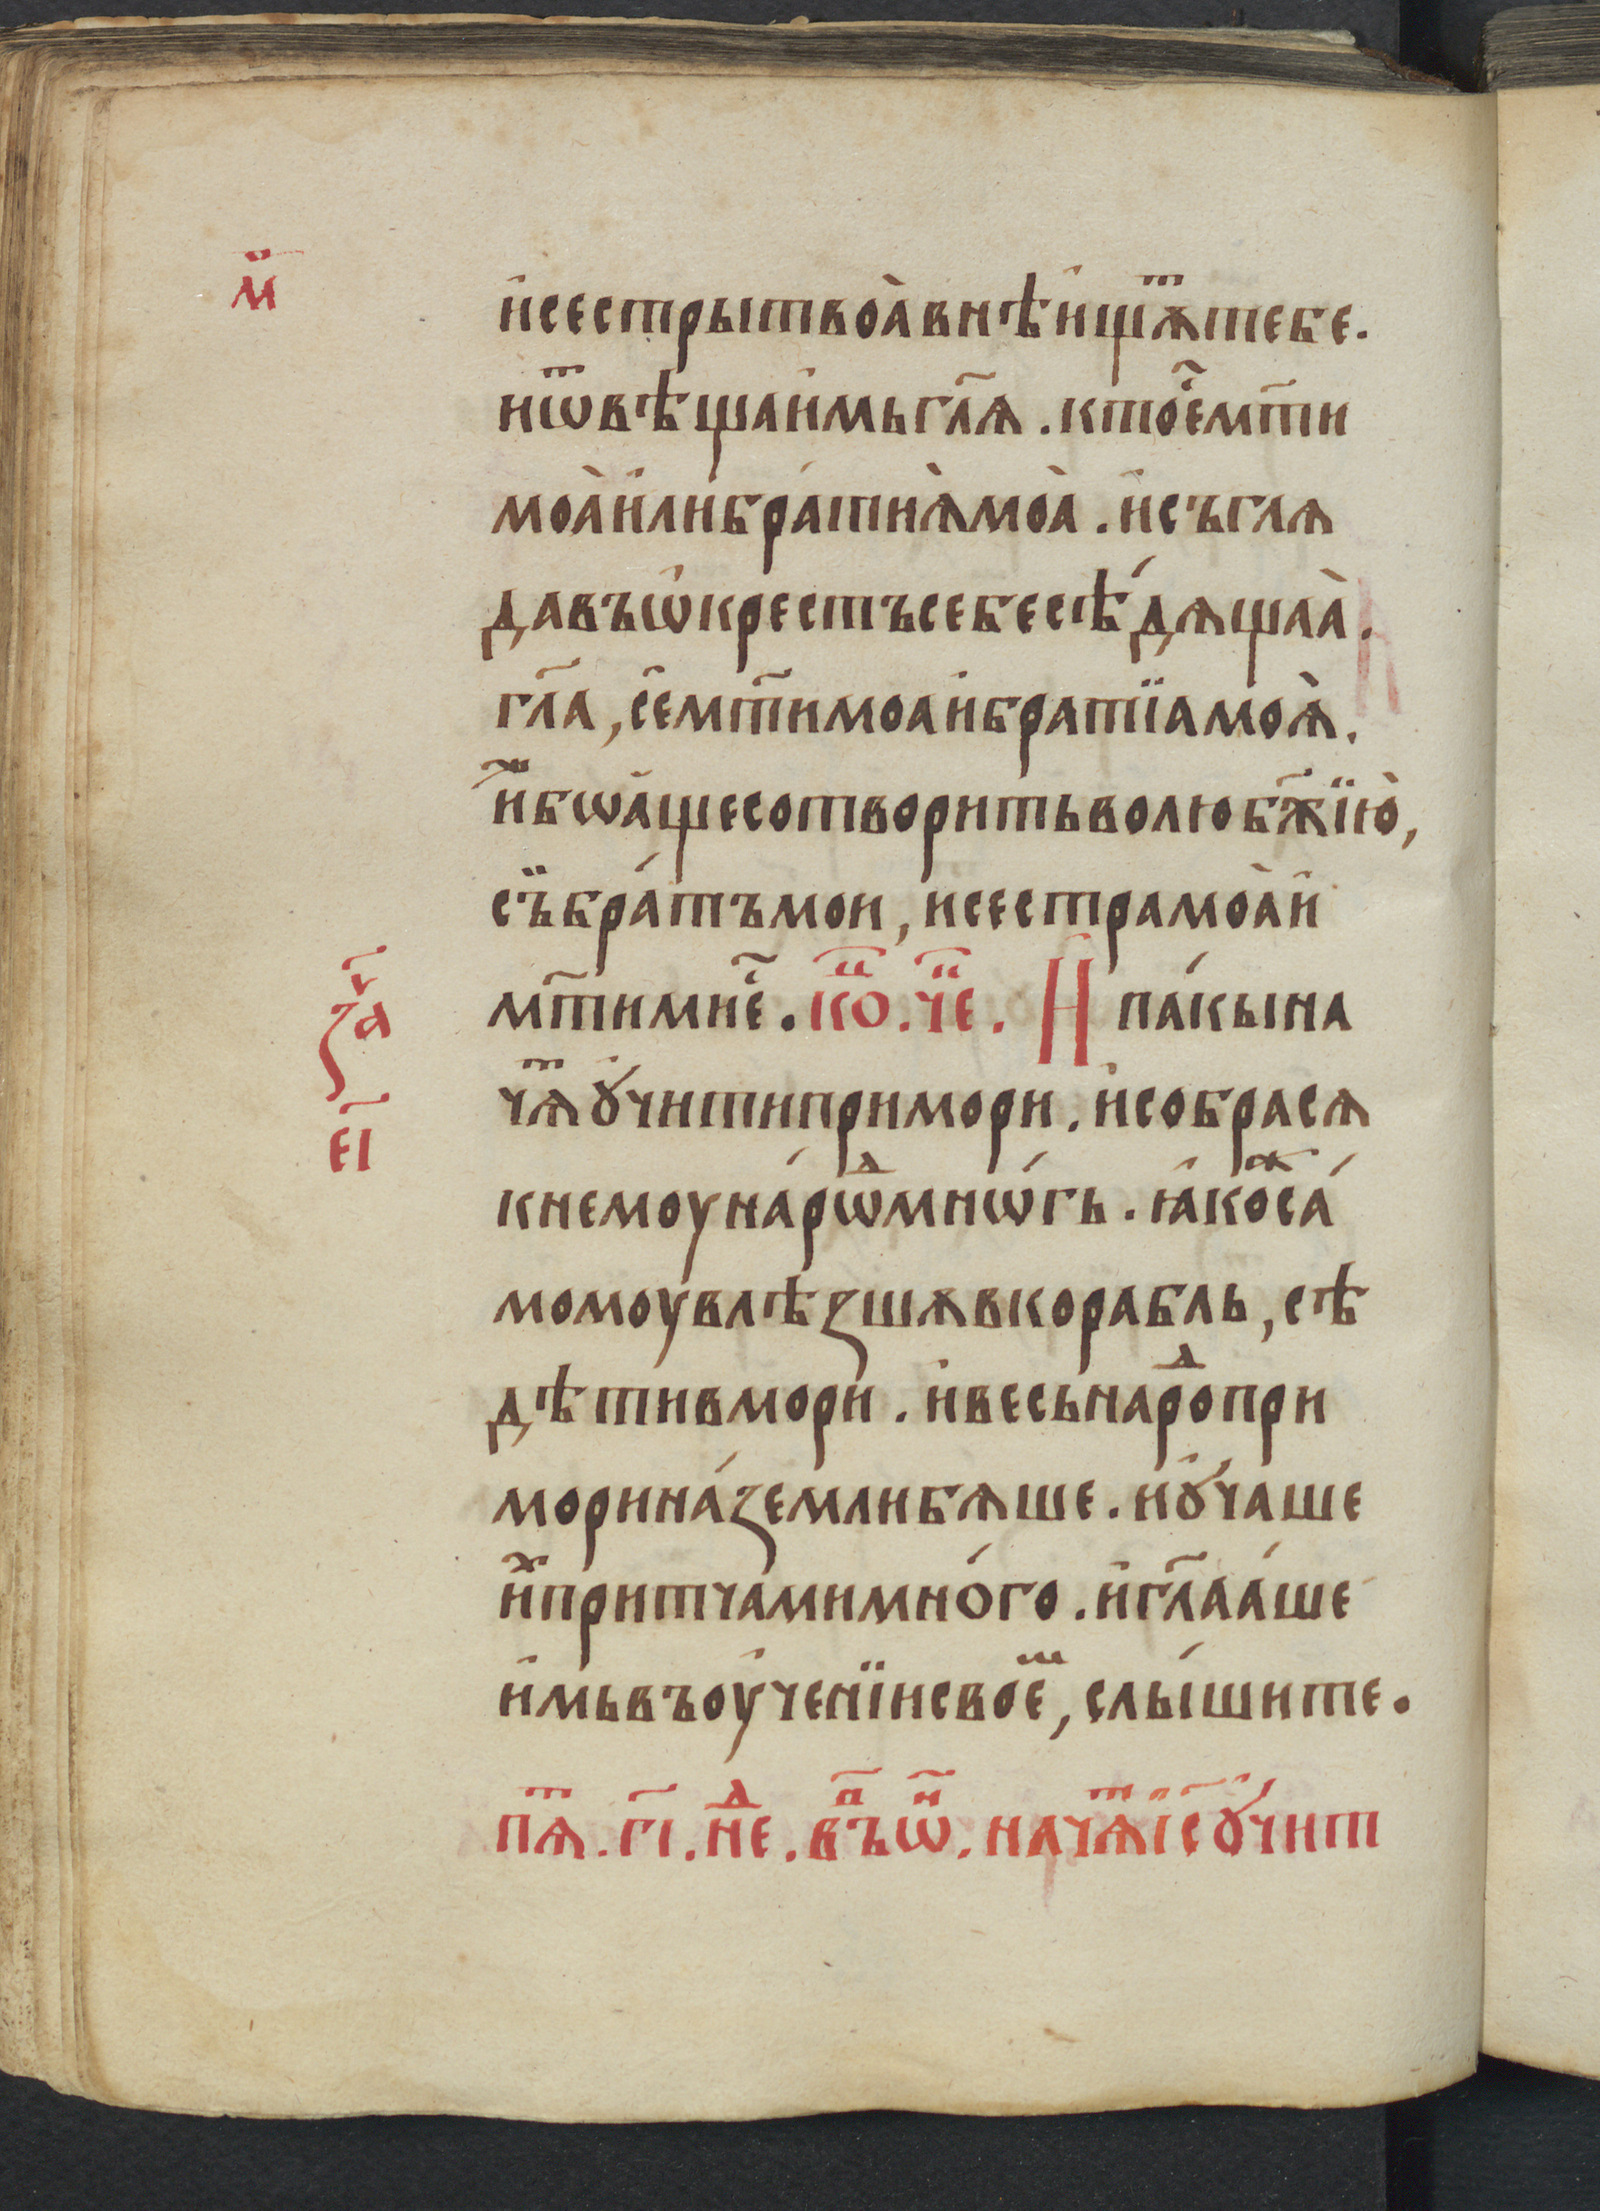 м҃
и҆сестрытвоа̀внѣи҆щѧⷮтебе.
иѿвѣщаи҆мьгл҃ѧ. ктоє҆⁭мт҃и
моа̀и҆либ҆ра́тиѧ̀моа̀. и҆съглѧ
давъѡ҆крестъсебесѣ́дѧщаа̀.
гл҃а, сеⷨ҇мт҃имоаи҆братїамоѧ̀.
иⷤ҆бѡа҆щесотворитьволюбж҃їю̀,
съ̈бра́тъмои, и҆сестрамоа̀и҆
мт҃имиⷭ҇є. коⷩ҇. чеⷭ҇. И҆ па́кына
за҃ч
є҃і
чѧⷮꙋ҆́читипримори. и҆собрасѧ
кнемоуна́рѡⷣмнѡ́гъ. ꙗ҆коⷤса́
момоувлѣзшѧвкорабль, сѣ
дѣтивмори. и҆весьнароⷣпри
морина́землибѧше. иꙋ҆́чаше
иⷯ҆притчамимно́го. и҆гл҃аа́ше
и҆мьвъоу҆ченїисвоеⷨ, слы́шите.
пѧⷮ. г҃і. неⷣ. въⷫ҇ѡⷩ҇. начѧⷮі҆с҃ꙋ҆́чит